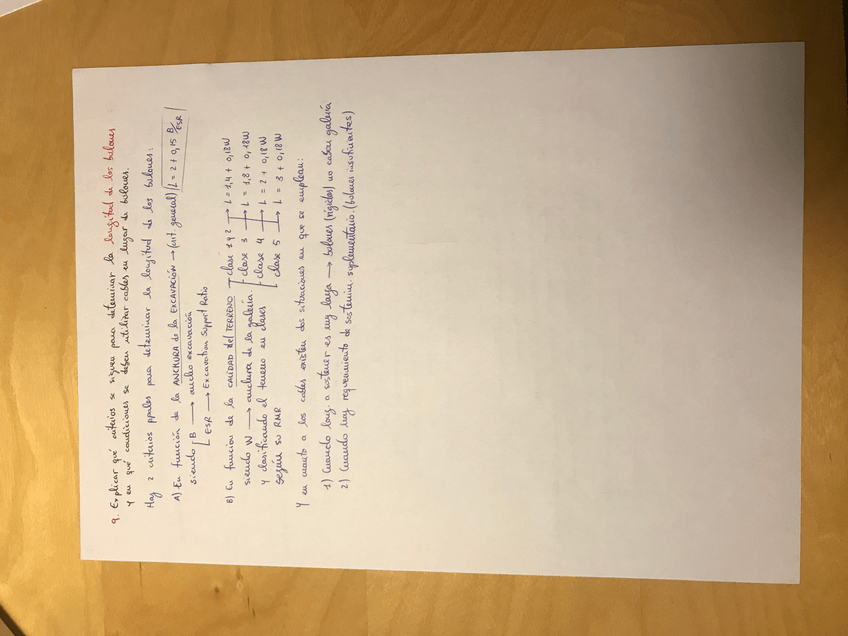 9. Explicar qué criterios se siguen para determinar la longitud de los bulones
y en qué condiciones se deben utilizar cables en lugar de bulones.
Hay 2 criterios ppales para determinar la longitud de los bulones:
A) En función de la ANCHURA de la EXCAVACIÓN → (crit. general) L = 2 + 0,15 B/ESR
siendo B → ancho excavación
ESR → Excavation Support Ratio
B) En función de la CALIDAD del TERRENO → clase 1 y 2 → L = 1,4 + 0,18W
siendo W → anchura de la galería. clase 3 → L = 1,8 + 0,18W
Y clasificando el terreno en clases clase 4 → L = 2 + 0,18W
según su RMR clase 5 → L = 3 + 0,18W
Y en cuanto a los cables existen dos situaciones en que se emplean:
1) Cuando long a sostener es muy larga → bulones (rígidos) no caben galería
2) Cuando muy requerimiento de sostenim. suplementario. (bulones insuficientes)